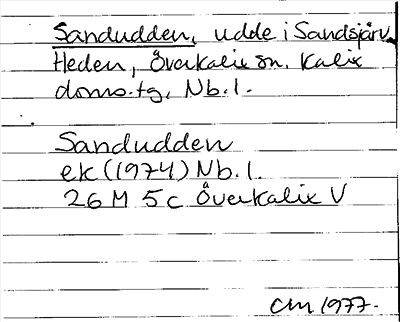 Sandudden, udde i Sandsjärv
Heden, Överkalix sn. Kalix
doms.tg, Nb.l.
Sandudden
ek (1974) Nb.l.
26 M 5c Överkalix V
CM 1977.